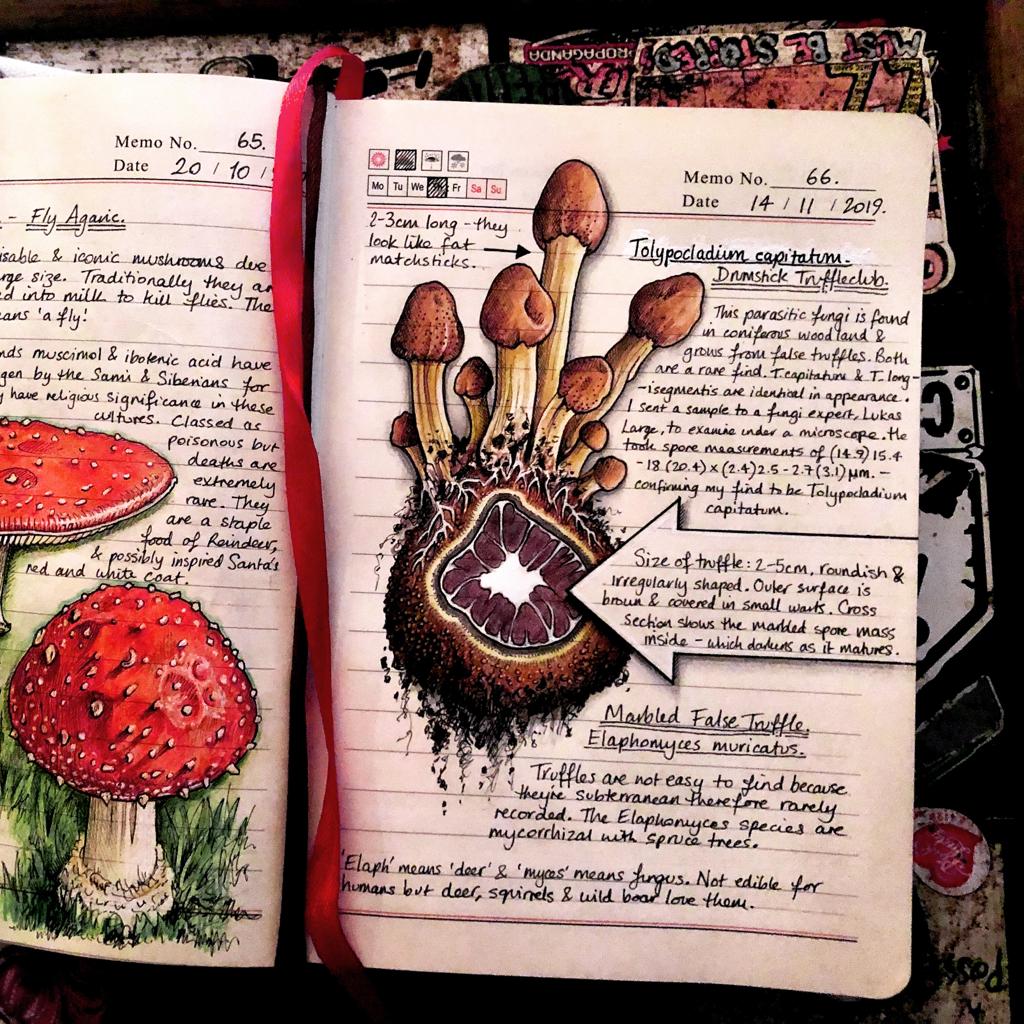 Memo No. 65.
Date 20 / 10 /
- Fly Agaric.
isable & iconic mushrooms due
rge size. Traditionally they ar
d into milk to kill flies. The
eans 'a fly!
nds muscimol & ibotenic acid have
gen by the Sami & Siberians for
y have religious significance in these
cultures. Classed as
poisonous but
deaths are
extremely
rare. They
are a staple
food of Reindeer,
& possibly inspired Santa's
red and white coat.
Mo Tu We Fr Sa Su
Memo No. 66.
Date 14 / 11 / 2019.
2-3cm long - they
look like fat
matchsticks.
Tolypocladium capitatum.
Drumstick Truffleclub.
This parasitic fungi is found
in coniferous woodland &
grows from false truffles. Both
are a rare find. T.capitatum & T. long-
-isegmentis are identical in appearance.
I sent a sample to a fungi expert, Lukas
Large, to examine under a microscope. He
took spore measurements of (14.9) 15.4
-18.(20.4) x (2.4) 2.5 - 2.7 (3.1) µm. -
confirming my find to be Tolypocladium
capitatum.
Size of truffle: 2-5cm, roundish &
irregularly shaped. Outer surface is
brown & covered in small warts. Cross
section shows the marbled spore mass
inside - which darkens as it matures.
Marbled False Truffle.
Elaphomyces muricatus.
Truffles are not easy to find because
they're subterranean therefore rarely
recorded. The Elaphomyces species are
mycorrhizal with spruce trees.
'Elaph' means 'deer' & 'myces' means fungus. Not edible for
humans but deer, squirrels & wild boar love them.
MUST BE STOPPED
PROPAGANDA
77